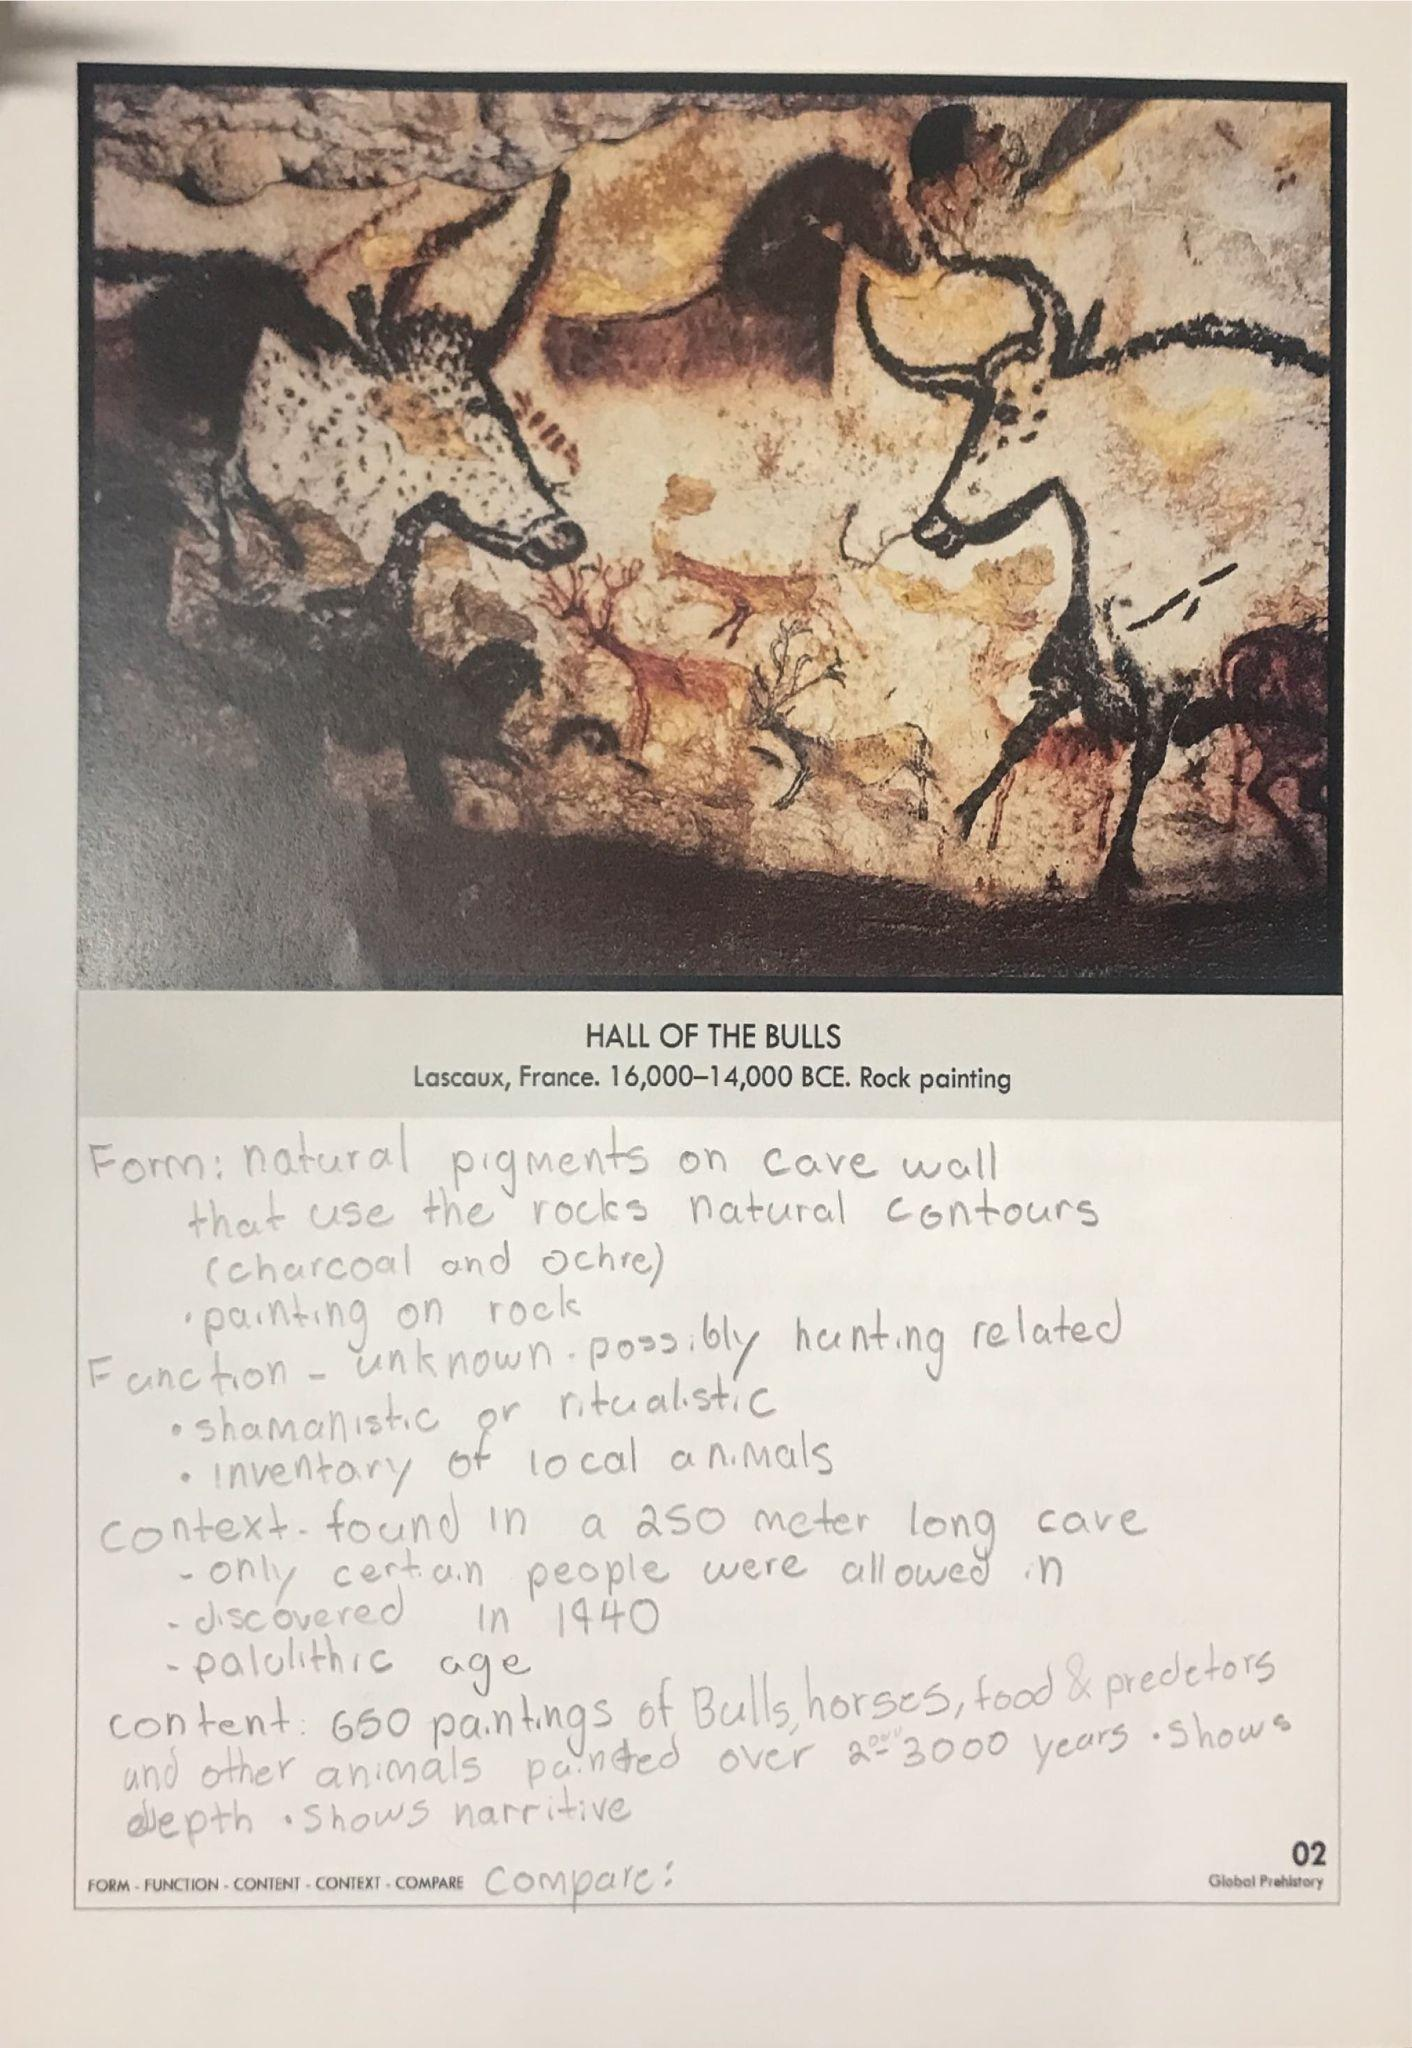 HALL OF THE BULLS
Lascaux, France. 16,000–14,000 BCE. Rock painting
Form: natural pigments on cave wall
that use the rocks natural contours
(charcoal and ochre)
• painting on rock
Function - unknown • possibly hunting related
• shamanistic or ritualistic
• inventory of local animals
Context - found in a 250 meter long cave
- only certain people were allowed in
- discovered in 1940
- palolithic age
content: 650 paintings of Bulls, horses, food & predetors
and other animals painted over 2000-3000 years • shows
depth • shows narritive
FORM - FUNCTION - CONTENT - CONTEXT - COMPARE Compare:
02
Global Prehistory